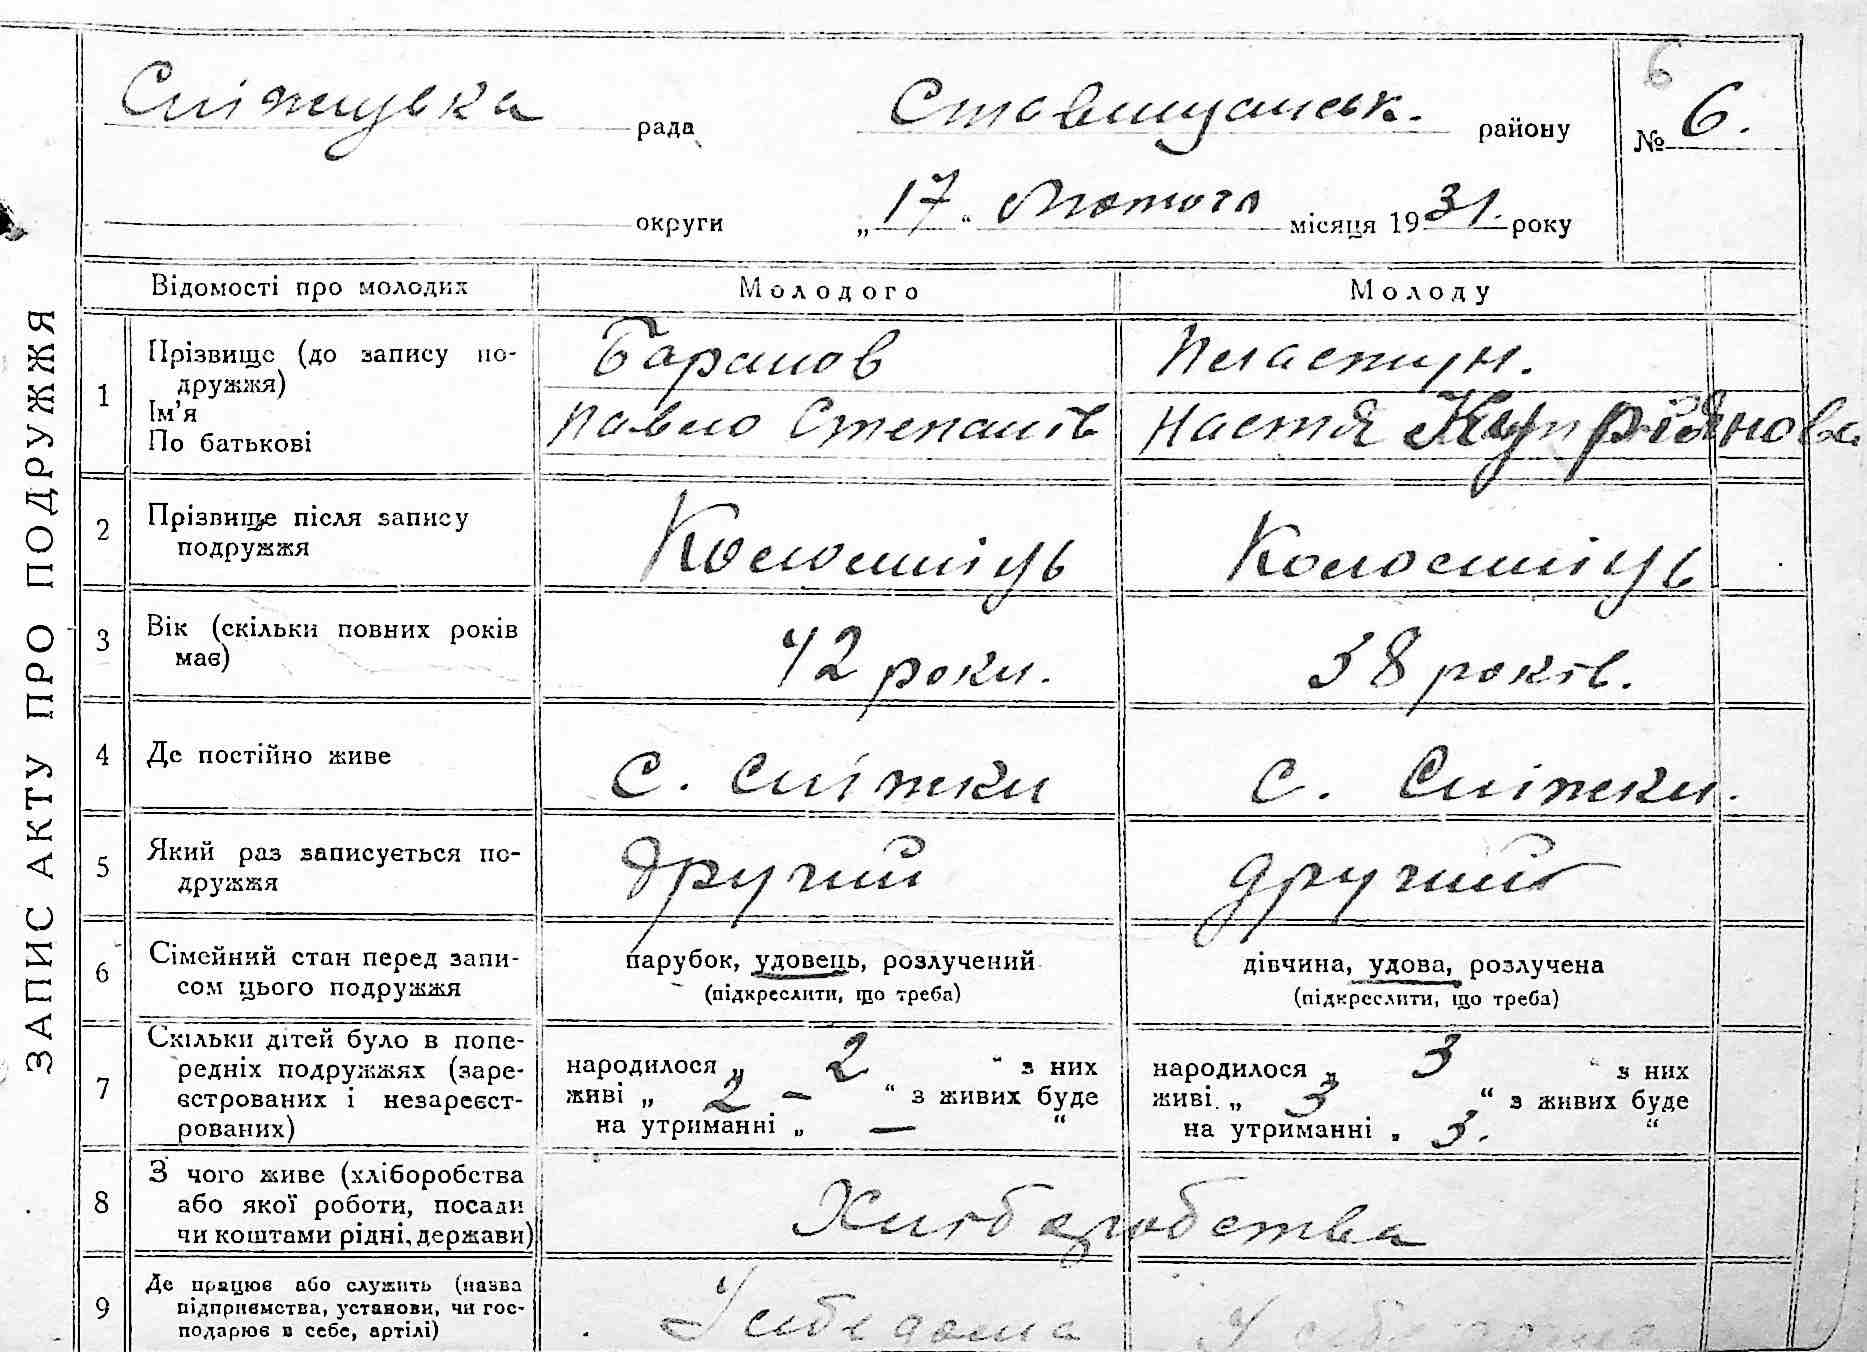 ЗАПИС АКТУ ПРО ПОДРУЖЖЯ
6
Сніжицька рада Ставищанськ. району № 6.
округи „17“ Лютого місяця 1931. року
Відомості про молодих Молодого Молоду
1 Прізвище (до запису подружжя) Баранов Пластун.
Ім'я
По батькові Павло Степанів Настя Купріянова
2 Прізвище після запису подружжя Коломиіць Коломиіць
3 Вік (скільки повних років має) 42 роки. 38 років.
4 Де постійно живе с. Сніжки с. Сніжки.
5 Який раз записується подружжя другий другий
6 Сімейний стан перед записом цього подружжя парубок, удовець, розлучений дівчина, удова, розлучена
(підкреслити, що треба) (підкреслити, що треба)
7 Скільки дітей було в попередніх подружжях (зареєстрованих і незареєстрованих)
народилося „ 2 “ з них народилося „ 3 “ з них
живі „ 2 – “ з живих буде живі „ 3 “ з живих буде
на утриманні „ — “ на утриманні „ 3. “
8 З чого живе (хліборобства або якої роботи, посади чи коштами рідні, держави) Хліборобства
9 Де працює або служить (назва підприємства, установи, чи господарює в себе, артілі) У себе дома У себе дома